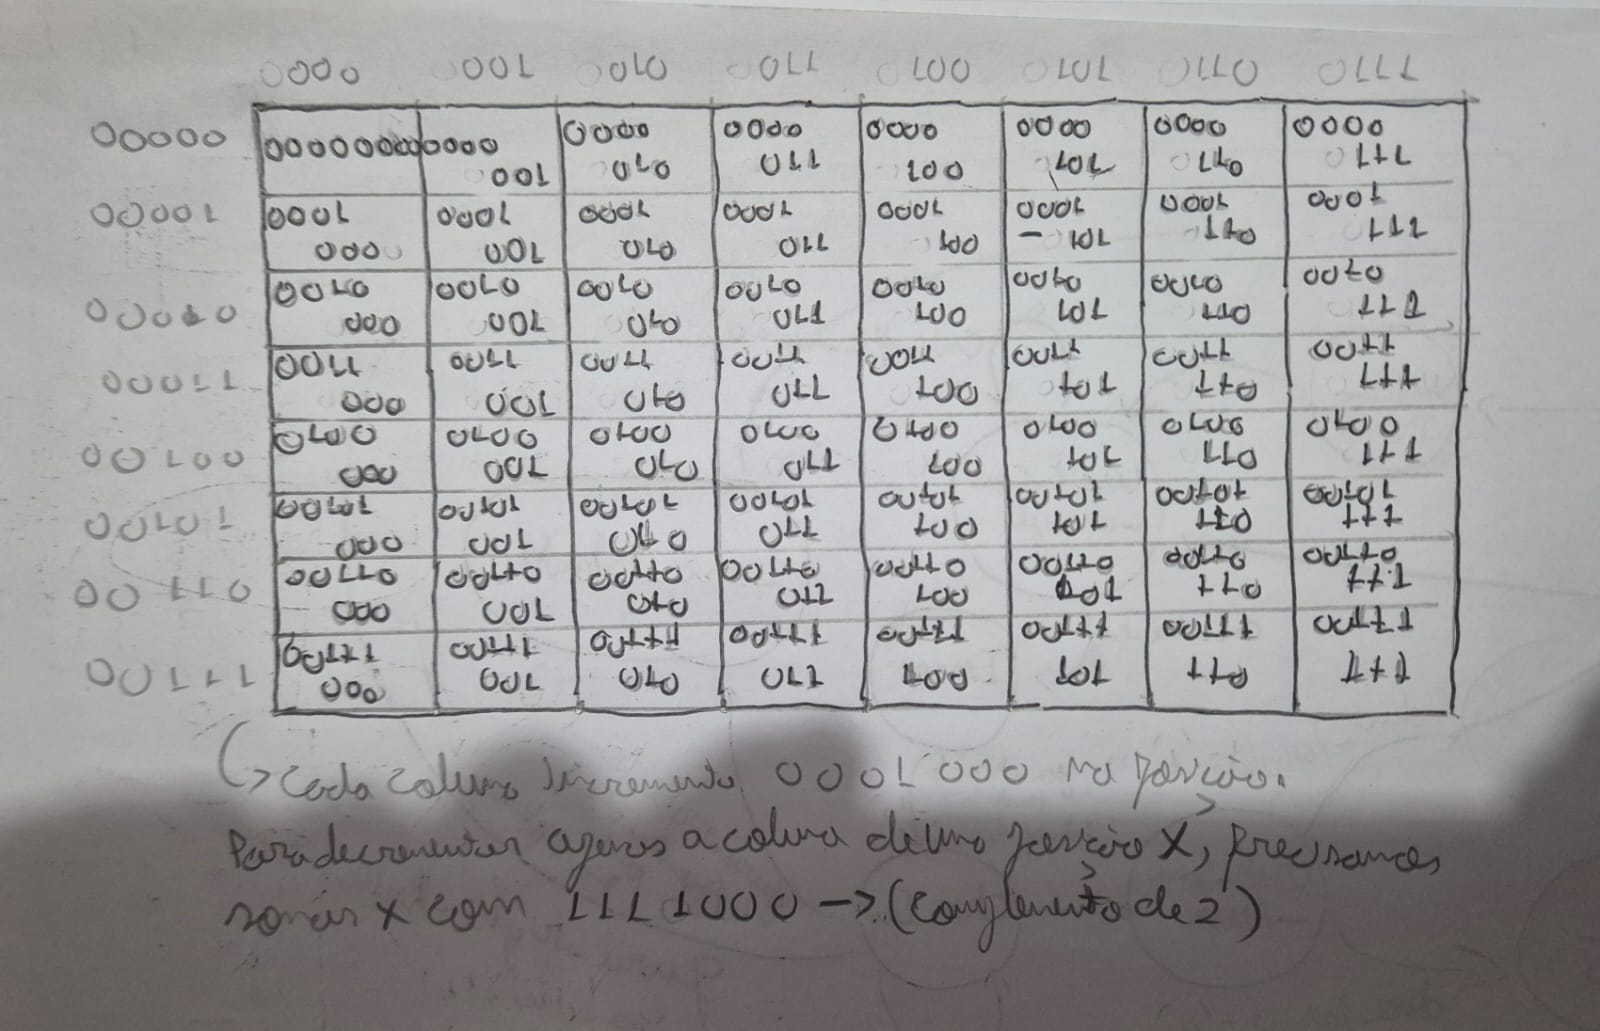 0000 001 010 011 100 101 110 111
00000 000000000 0000 0000 0000 0000 0000 0000 0000
001 010 011 100 101 110 111
00001 0001 0001 0001 0001 0001 0001 0001 0001
000 001 010 011 100 101 110 111
00010 0010 0010 0010 0010 0010 0010 0010 0010
000 001 010 011 100 101 110 111
00011 0011 0011 0011 0011 0011 0011 0011 0011
000 001 010 011 100 101 110 111
00100 0100 0100 0100 0100 0100 0100 0100 0100
000 001 010 011 100 101 110 111
00101 00101 00101 00101 00101 00101 00101 00101 00101
000 001 010 011 100 101 110 111
00110 00110 00110 00110 00110 00110 00110 00110 00110
000 001 010 011 100 101 110 111
00111 00111 00111 00111 00111 00111 00111 00111 00111
000 001 010 011 100 101 110 111
Cada coluna incrementa 0001000 na posição.
Para decrementar apenas a coluna de uma posição X, precisamos
somar x com 1111000 -> (complemento de 2)